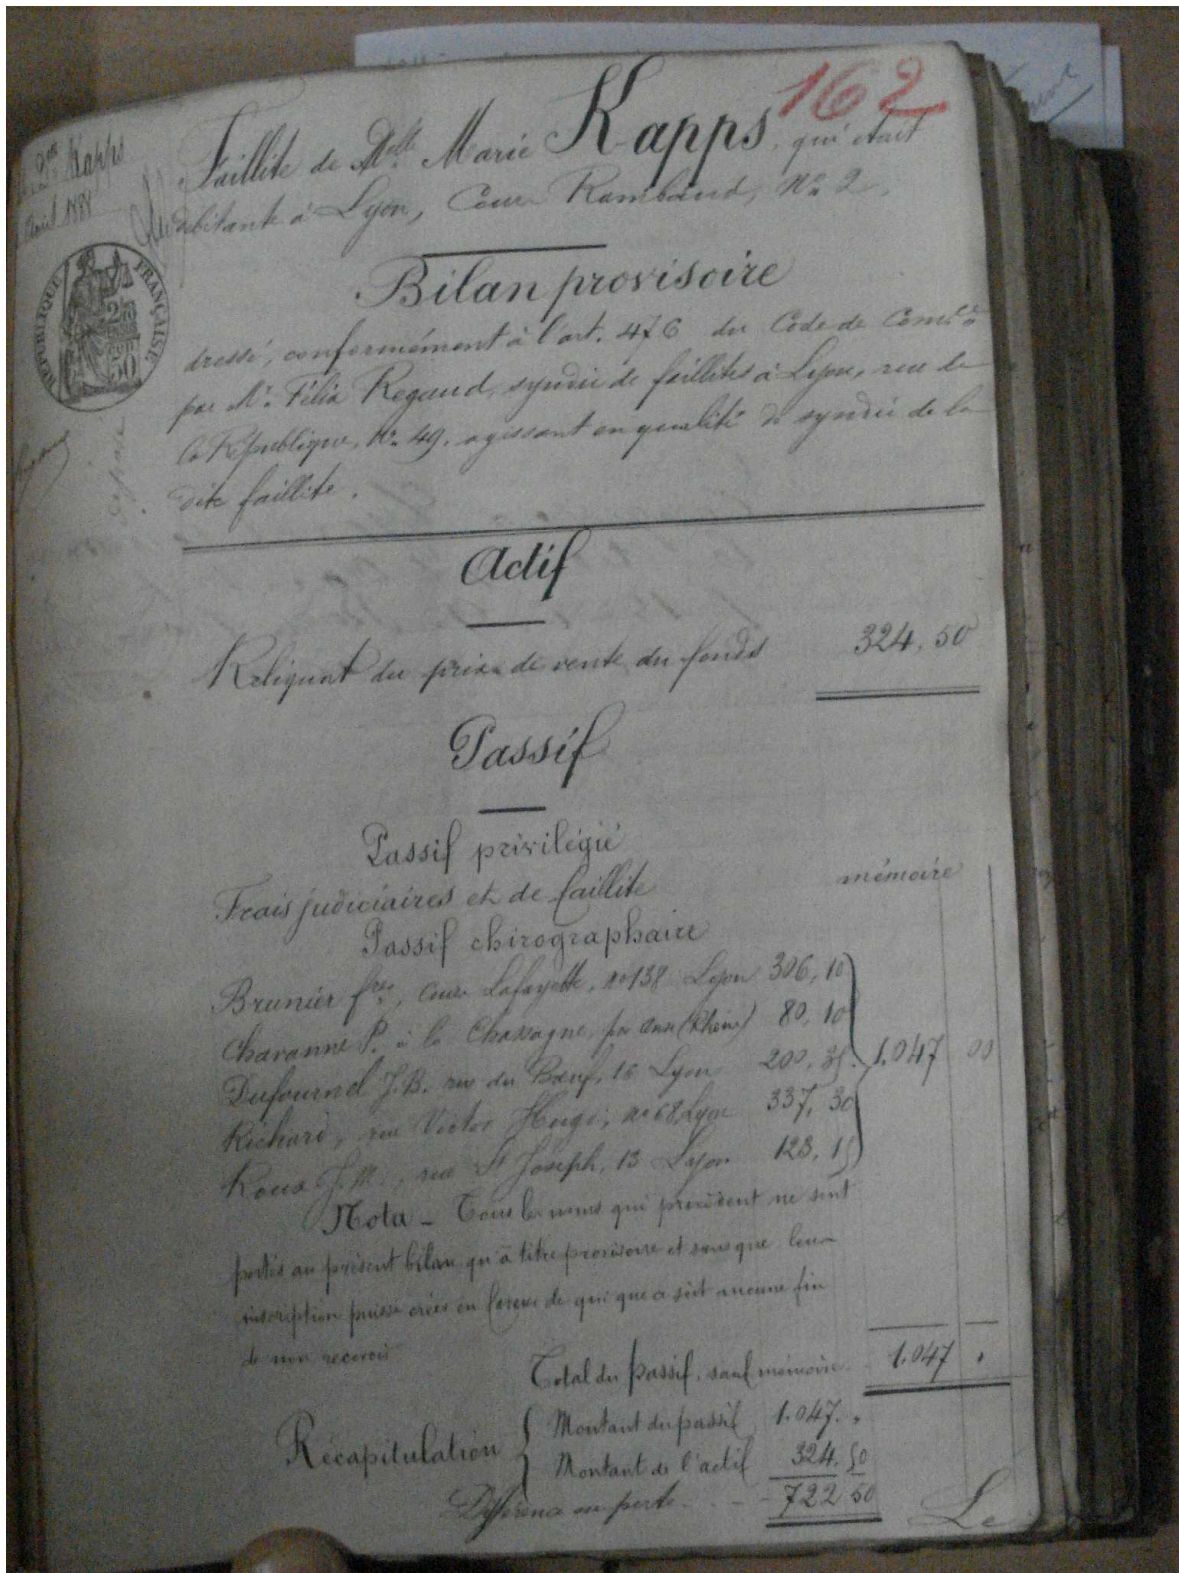 162
Faillite de Dlle Marie Kapps, qui était
débitante à Lyon, Cours Rambaud, No 2.
Dlle Kapps
Avril 1888
RÉPUBLIQUE FRANÇAISE
Bilan provisoire
dressé, conformément à l'art. 476 du Code de Comce
par Mr. Félix Regaud, syndic de faillites à Lyon, rue de
la République, No. 49, agissant en qualité de syndic de la
dite faillite.
Actif
Reliquat du prix de vente du fonds 324,50
Passif
Passif privilégié
Frais judiciaires et de faillite mémoire
Passif chirographaire
Brunier fres, Cours Lafayette, no 138 Lyon 306,10
Chavanne P. à la Chassagne, par Anse (Rhône) 80,10
Dufournel J.B. rue du Bœuf, 16 Lyon 200,35 1.047 00
Richard, rue Victor Hugo, no 68 Lyon 337,30
Roux J.M., rue St Joseph, 13 Lyon 123,15
Nota – Tous les noms qui précèdent ne sont
portés au présent bilan qu'à titre provisoire et sans que leur
inscription puisse créer en faveur de qui que ce soit aucune fin
de non recevoir
Total du passif, sauf mémoire 1.047 "
Récapitulation { Montant du passif 1.047. "
Montant de l'actif 324.50
Différence en perte 722 50
Le